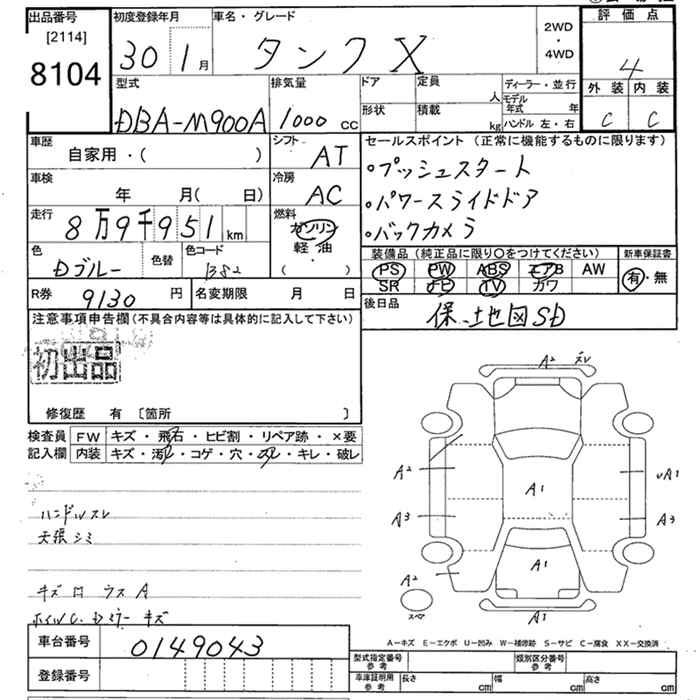 出品番号
[2114]
8104
初度登録年月
30 1月
車名・グレード
タンク X
2WD
・
4WD
評価点
4
外装 内装
C C
型式
DBA-M900A
排気量
1000 cc
ドア
定員
人
形状
積載
kg
ディーラー・並行
モデル年式 年
ハンドル 左・右
車歴
自家用・( )
シフト
AT
車検
年 月( 日)
冷房
AC
走行
8万9千951 km
燃料
ガソリン
軽・油
( )
色
Dブルー
色替
色コード
B82
R券
9130 円
名変期限 月 日
セールスポイント(正常に機能するものに限ります)
・プッシュスタート
・パワースライドドア
・バックカメラ
装備品(純正品に限り〇をつけてください)
新車保証書
PS PW ABS エアB AW
SR ナビ TV カワ
有・無
後日品
保-地図SD
注意事項申告欄(不具合内容等は具体的に記入して下さい)
初出品
修復歴 有 〔箇所 〕
検査員
記入欄
FW キズ・飛石・ヒビ割・リペア跡・×要
内装 キズ・汚れ・コゲ・穴・スレ・キレ・破レ
ハンドルスレ
天張シミ
キズ ロ ウス A
ホイルC. Dミラー キズ
A2 スレ
A2
A1
UA1
A3
A3
A2
A1
スペア
A1
A-キズ E-エクボ U-凹み W-補修跡 S-サビ C-腐食 XX-交換済
車台番号
0149043
登録番号
型式指定番号
参考
類別区分番号
参考
車庫証明用
参考
長さ cm
幅 cm
高さ cm